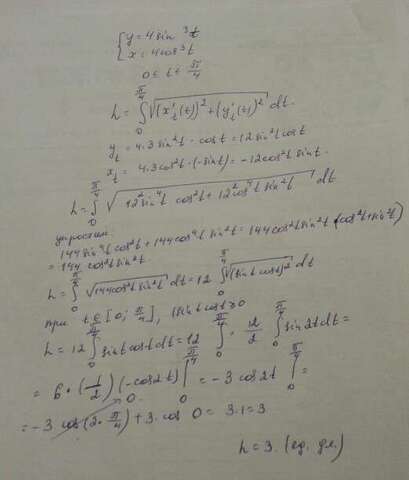 { y = 4 sin³t
x = 4 cos³t
0 ≤ t ≤ π/4
L = ∫₀^(π/4) √((x't(t))² + (y't(t))²) dt.
y't = 4·3 sin²t · cos t = 12 sin²t cos t
x't = 4·3 cos²t · (-sin t) = -12 cos²t sin t.
L = ∫₀^(π/4) √(12² sin⁴t cos²t + 12² cos⁴t sin²t) dt
упростим:
144 sin⁴t cos²t + 144 cos⁴t sin²t = 144 cos²t sin²t (cos²t + sin²t)
= 144 cos²t sin²t
L = ∫₀^(π/4) √(144 cos²t sin²t) dt = 12 ∫₀^(π/4) √(sin t cos t)² dt
при t ∈ [0; π/4], sin t cos t ≥ 0
L = 12 ∫₀^(π/4) sin t cos t dt = 12/2 ∫₀^(π/4) sin 2t dt =
= 6 · (1/2) (-cos 2t) |₀^(π/4) = -3 cos 2t |₀^(π/4) =
= -3 cos(2·π/4) + 3·cos 0 = 3·1 = 3
L = 3. (ед. дл.)